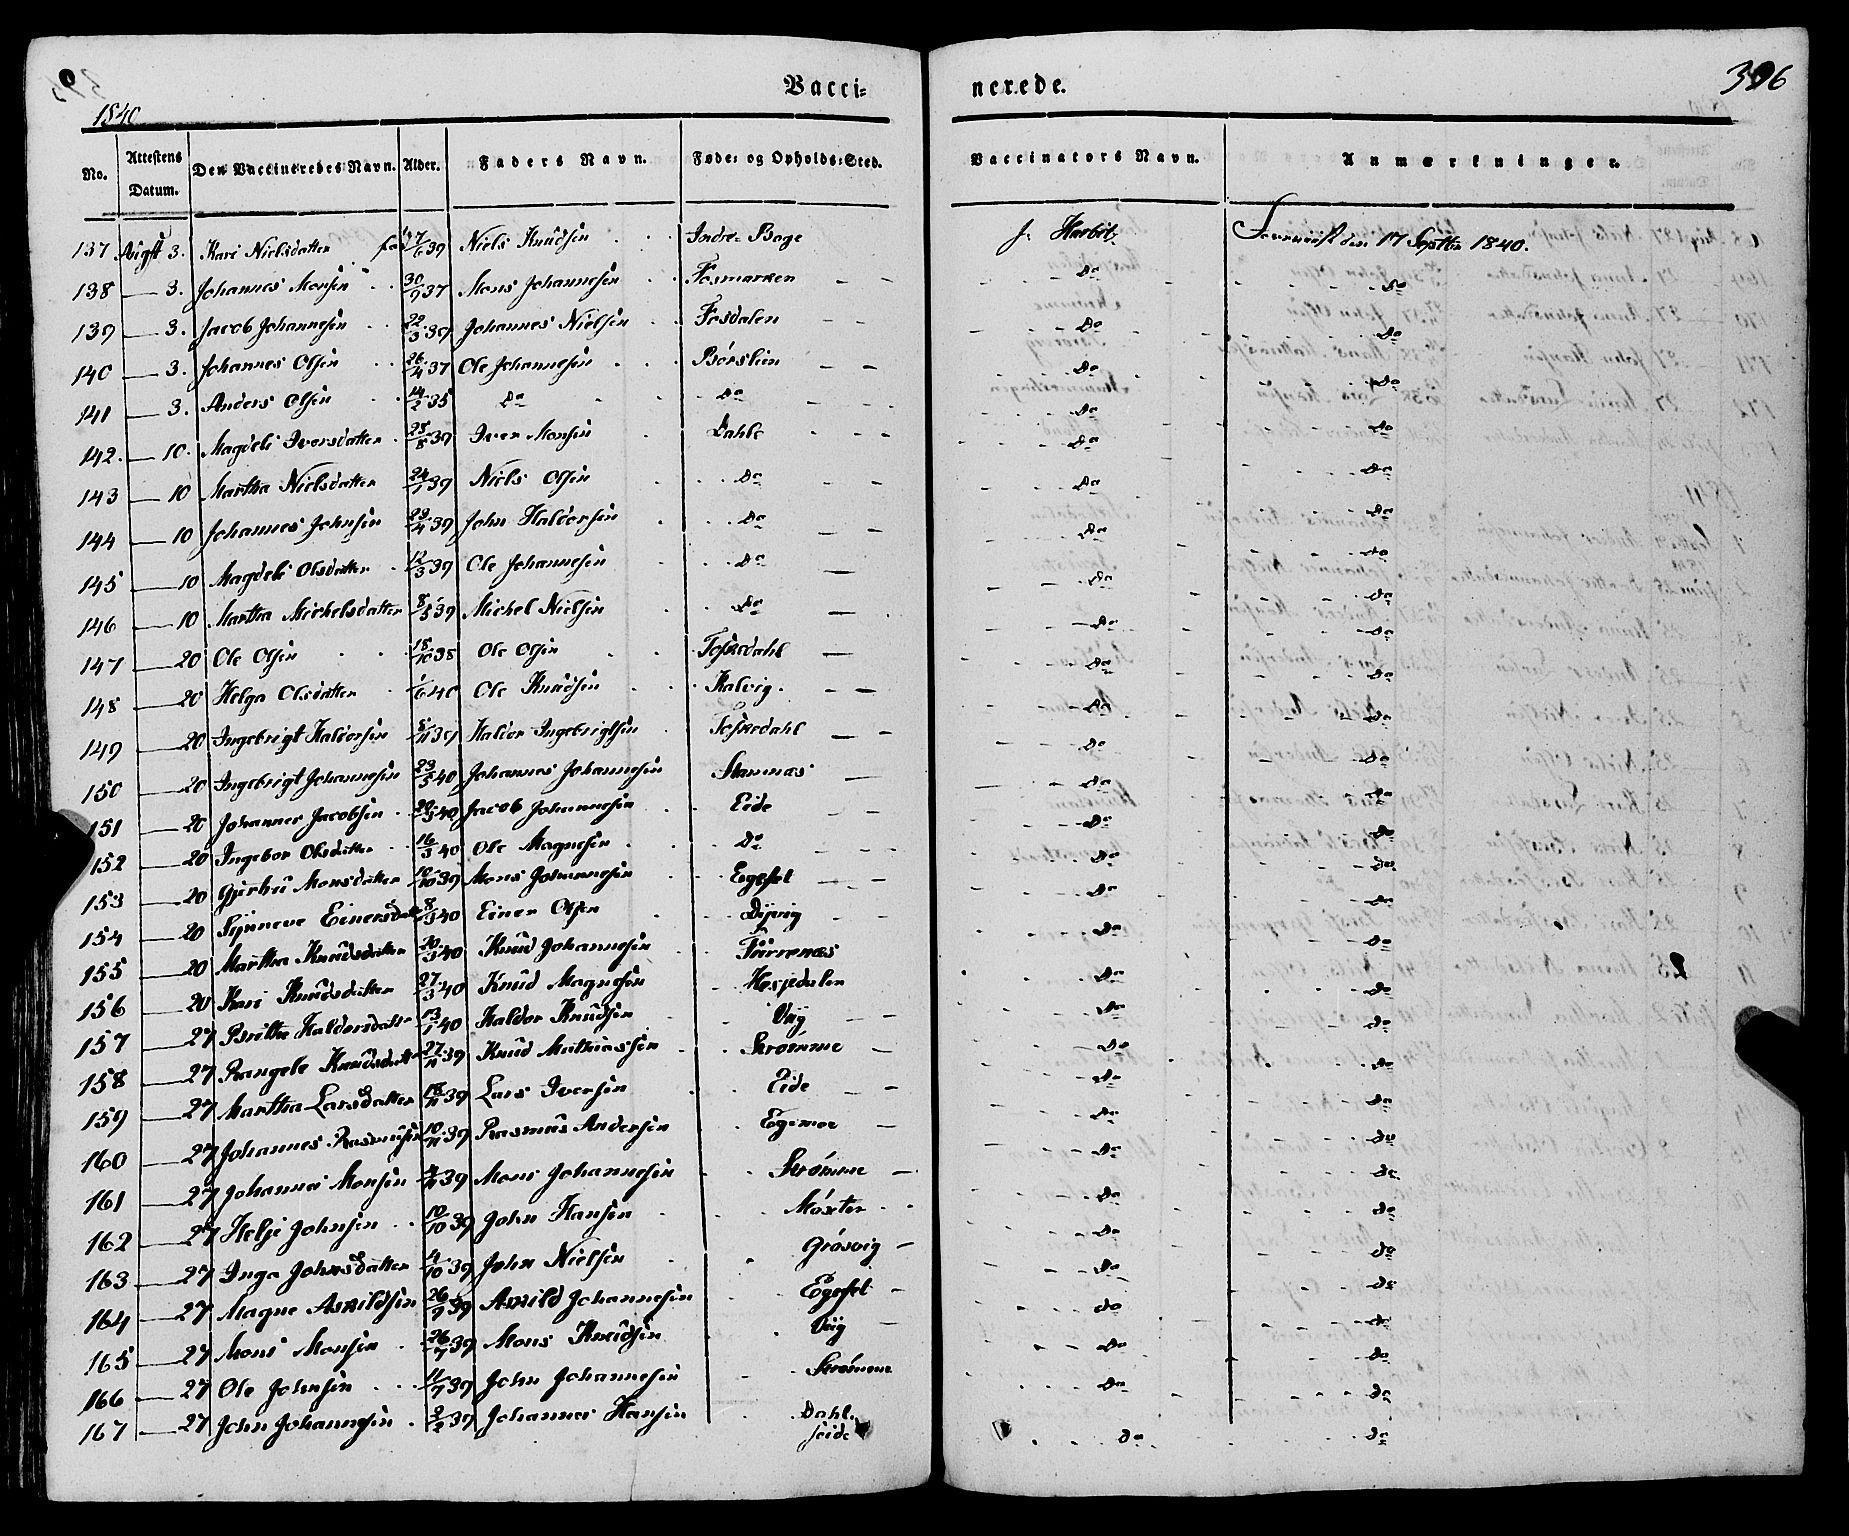 396
Vacci- nerede.
1840
No. Attestens Datum. Den Vaccineredes Navn. Alder. Faders Navn. Føde- og Opholds-Sted. Vaccinators Navn. Anmærkninger.
137 Augst 3. Kari Nielsdatter fød 17/6 39 Niels Knudsen Indre Boge Fremvist den 17 Septbr 1840.
138 — 3. Johannes Monsen 30/9 37 Mons Johannesen Fosmarken Do Do
139 — 3. Jacob Johannesen 22/3 39 Johannes Nielsen Fosdalen Do Do
140 — 3. Johannes Olsen 26/4 37 Ole Johannesen Børslien Do Do
141 — 3. Anders Olsen 14/2 35 Do Do Do Do
142. — 10. Magdeli Iversdatter 28/8 39 Iver Monsen Dahle Do Do
143 — 10 Martha Nielsdatter 24/1 39 Niels Olsen Do Do Do
144 — 10 Johannes Johnsen 29/4 39 John Haldorsen Do Do Do
145 — 10 Magdeli Olsdatter 12/3 39 Ole Johannesen Do Do Do
146 — 10 Martha Michelsdatter 8/5 39 Michel Nielsen Do Do Do
147 — 20 Ole Olsen 18/10 38 Ole Olsen Toskedahl Do Do
148 — 20 Helga Olsdatter 1/6 40 Ole Knudsen Kalvig. Do Do
149 — 20 Ingebrigt Haldorsen 5/11 39 Haldor Ingebrigtsen Toskedahl Do Do
150 — 20 Ingebrigt Johannesen 23/5 40 Johannes Johannesen Stamnæs Do Do
151 — 20 Johannes Jacobsen 20/3 40 Jacob Johannesen Eide Do Do
152 — 20 Ingebor Olsdatter 16/3 40 Ole Magnesen Do Do Do
153 — 20 Monsdatter 10/10 39 Mons Johannesen Do Do
154 — 20 Synneve Einersdatter 8/3 40 Einer Olsen Dyvig Do Do
155 — 20 Martha Knudsdatter 20/3 40 Knud Johannesen Do Do
156 — 20 Kari Knudsdatter 27/3 40 Knud Magnesen Hesjedalen Do Do
157 — 27 Brithe Haldorsdatter 13/1 40 Haldor Knudsen Viig Do Do
158 — 27 Rangele Knudsdatter 27/11 39 Knud Mathiassen Strømme Do Do
159 — 27 Martha Larsdatter 18/11 39 Lars Iversen Eide Do Do
160 — 27 Johannes Rasmusen 10/11 39 Rasmus Andersen Egemoe Do Do
161 — 27 Johannes Monsen 39 Mons Johannesen Strømme Do Do
162 — 27 Helje Johnsen 10/10 39 John Hansen Moxter Do Do
163 — 27 Inga Johnsdatter 4/10 39 John Nielsen Grosvig Do Do
164 — 27 Magne Asmildsen 26/9 39 Asmild Johannesen Do Do
165 — 27 Mons Monsen 26/7 39 Mons Knudsen Viig Do Do
166 — 27 Ole Johnsen 11/7 39 John Johannesen Strømme Do Do
167 — 27 John Johannesen 2/2 39 Johannes Hansen Dahl- seide Do Do